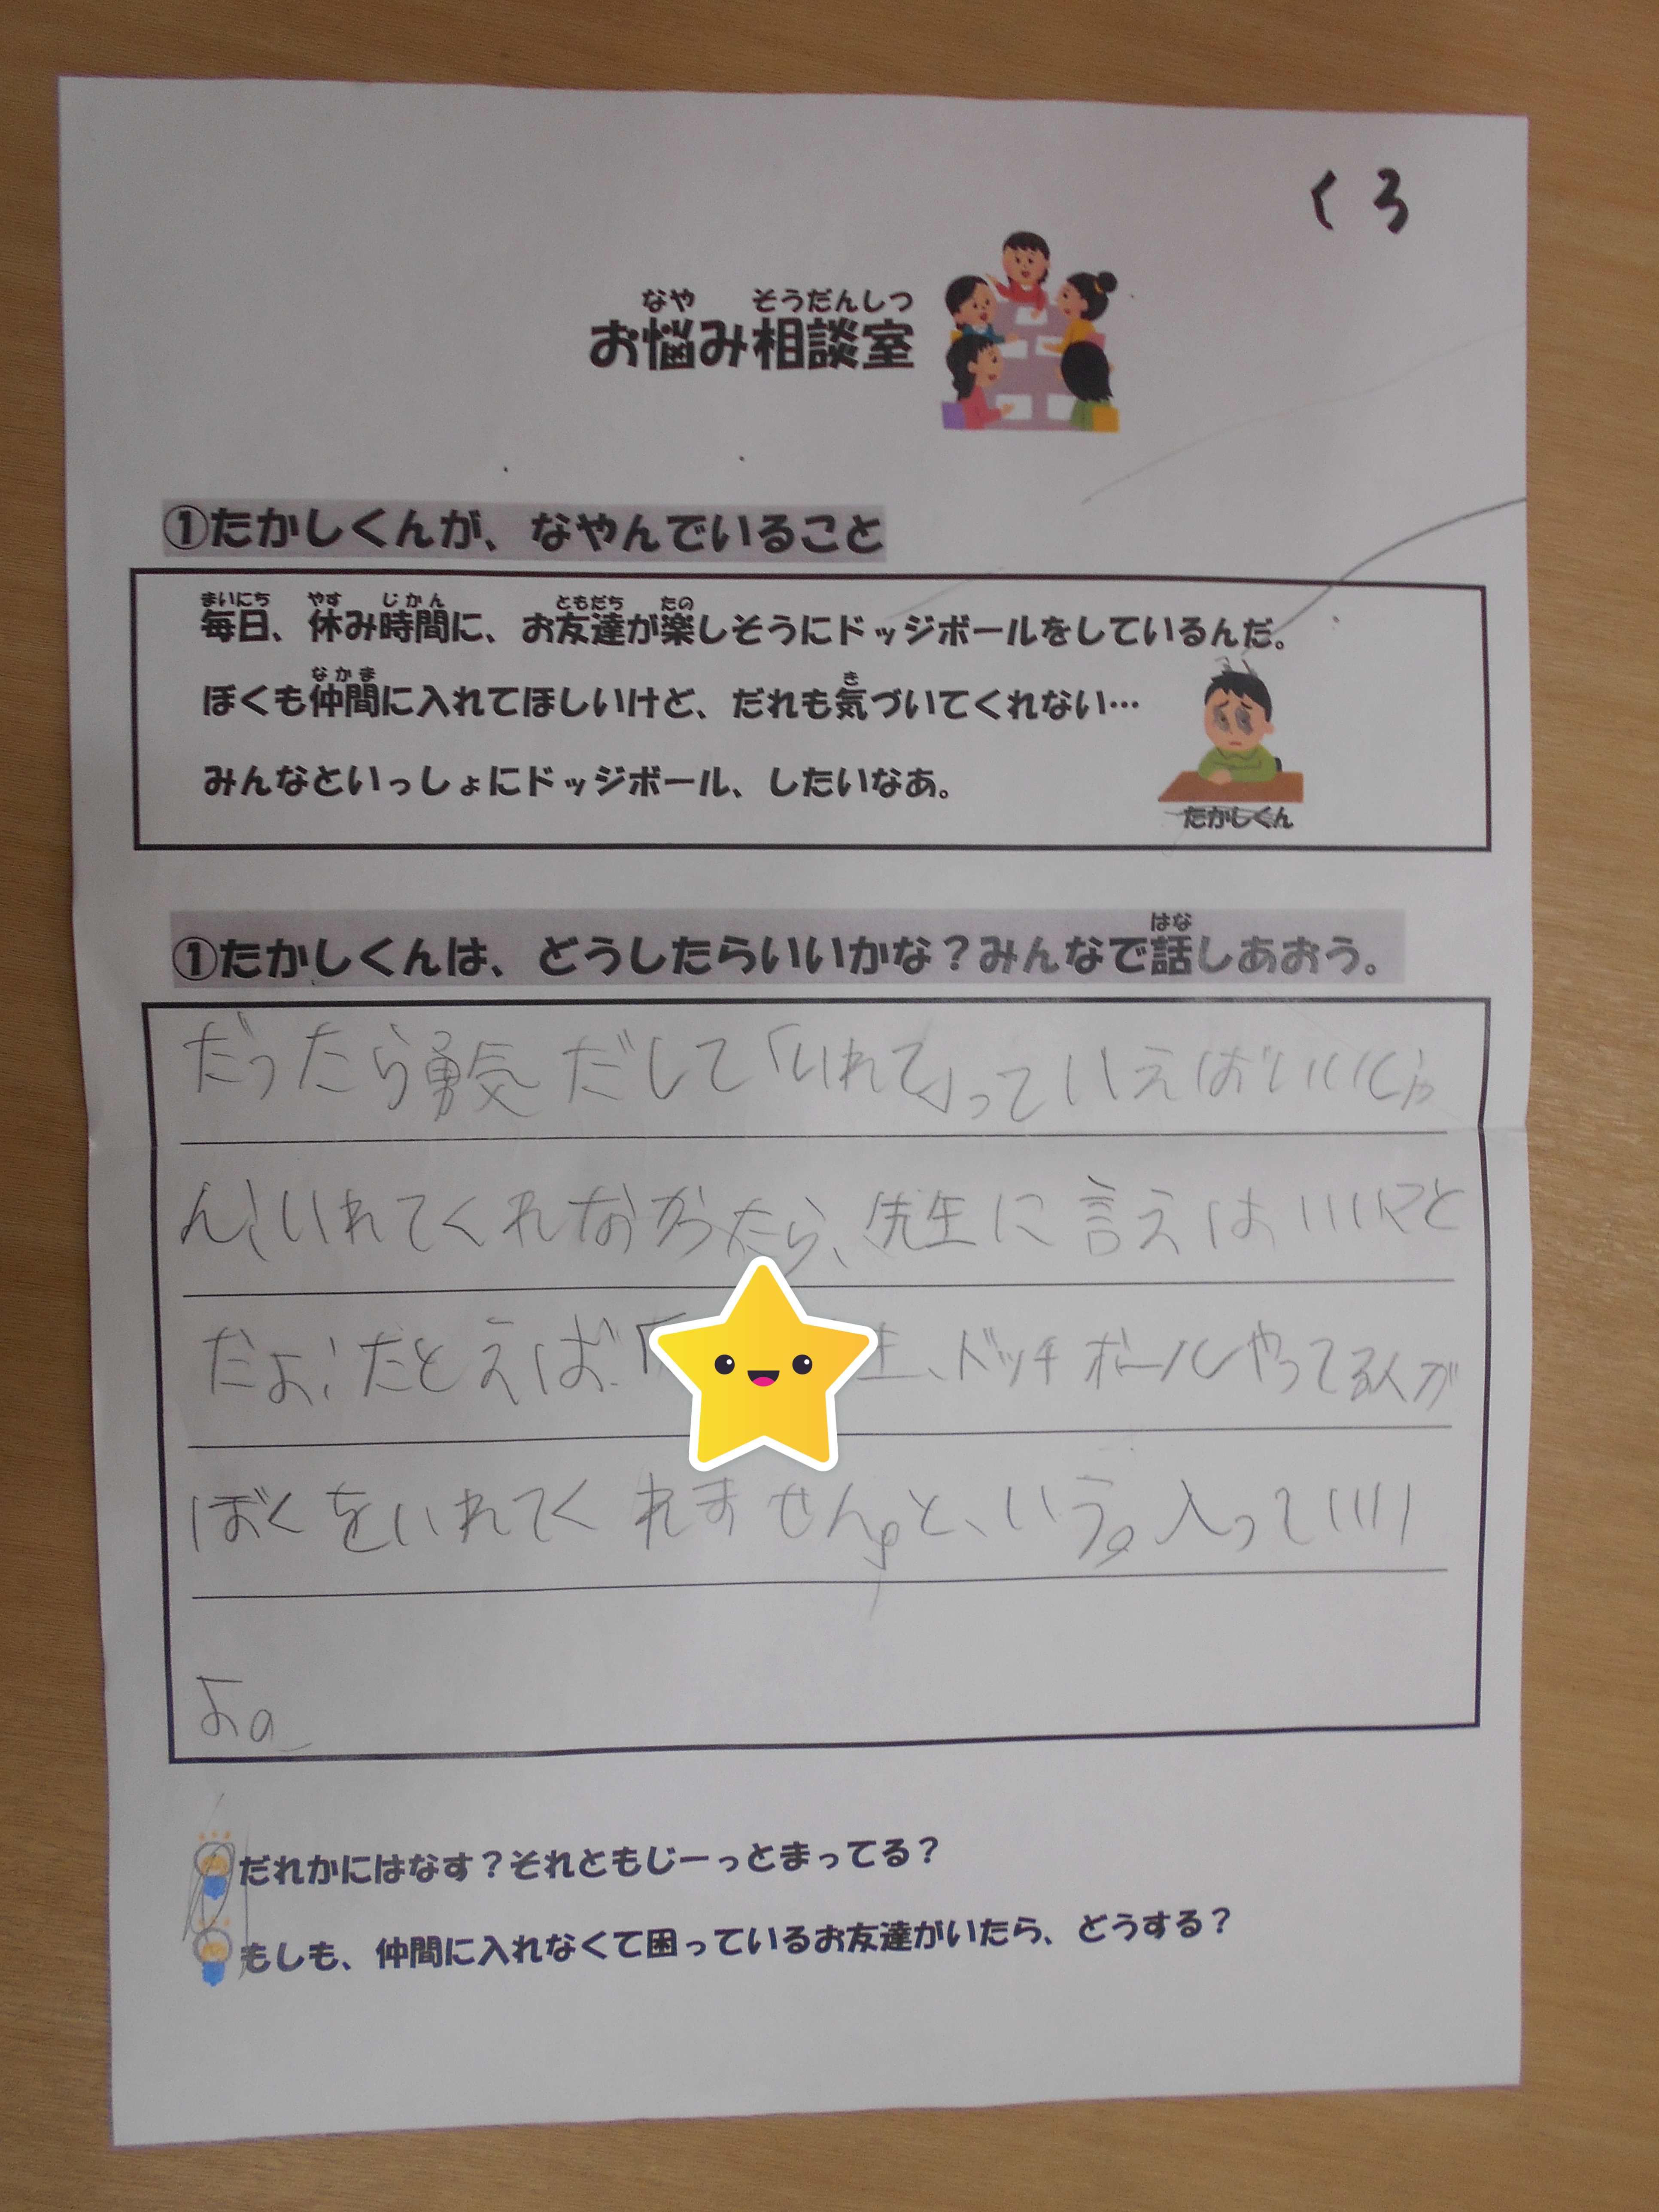 くろ
なや そうだんしつ
お悩み相談室
①たかしくんが、なやんでいること
まいにち やす じかん ともだち たの
毎日、休み時間に、お友達が楽しそうにドッジボールをしているんだ。
なかま き
ぼくも仲間に入れてほしいけど、だれも気づいてくれない…
みんなといっしょにドッジボール、したいなあ。
たかしくん
はな
①たかしくんは、どうしたらいいかな？みんなで話しあおう。
だったら勇気だして「いれて」っていえばいいじゃ
ん、いれてくれなかったら、先生に言えはいい
だよ!たとえば「生、ドッチボールやってる人が
ぼくをいれてくれません。と、いう。入っていい
よ。
だれかにはなす？それともじーっとまってる？
もしも、仲間に入れなくて困っているお友達がいたら、どうする？